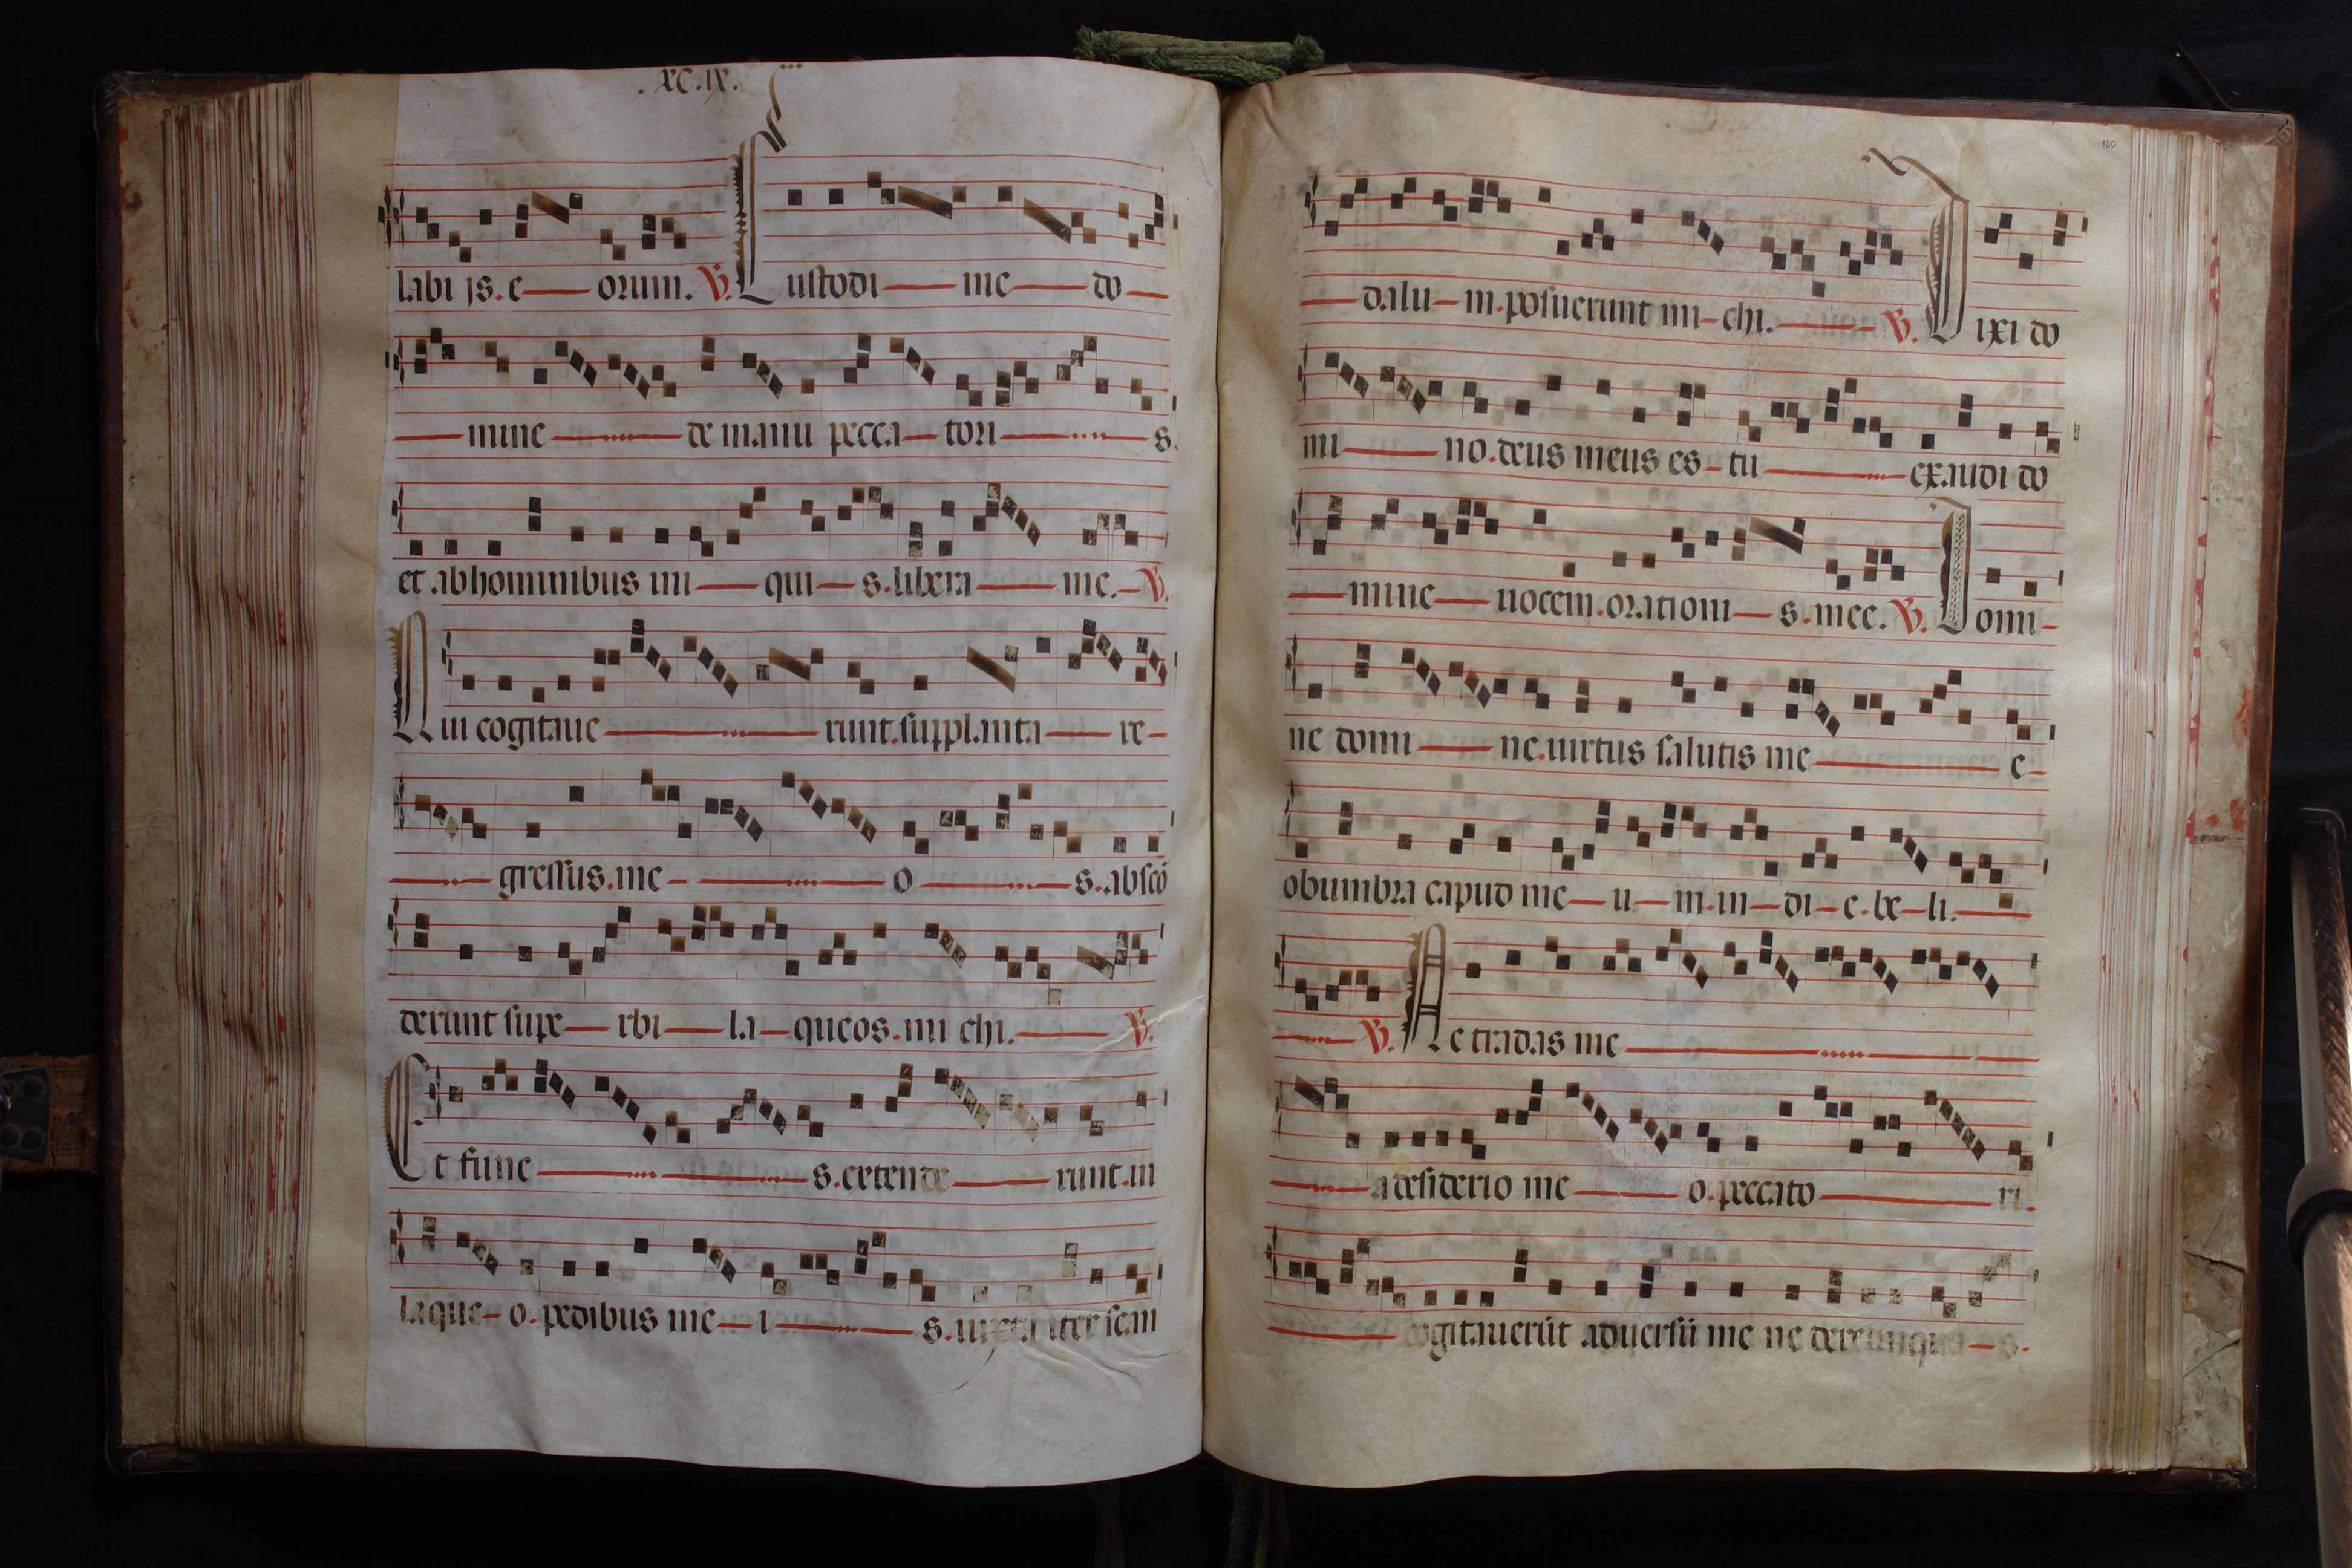 .xc.ix.
labi js. e orum. V. Custodi me do
mine de manu pecca tori s.
et ab hominibus ini qui s. libera me. V.
Qui cogitaue runt. supplanta re
gressus. me o s. abscō
derunt supe rbi la queos. mi chi. V.
Et fune s. extende runt. in
laque o. pedibus me i s. iuxta iter scan
100
dalu m. posuerunt mi chi. V. Dixi do
mi no. deus meus es tu exaudi do
mine uocem. orationi s. mee. V. Domi
ne domi ne. uirtus salutis me e
obumbra capud me u m. in di e. be li.
V. Ne tradas me
a desiderio me o. peccato ri.
cogitauerūt aduersū me ne derelinqua s.